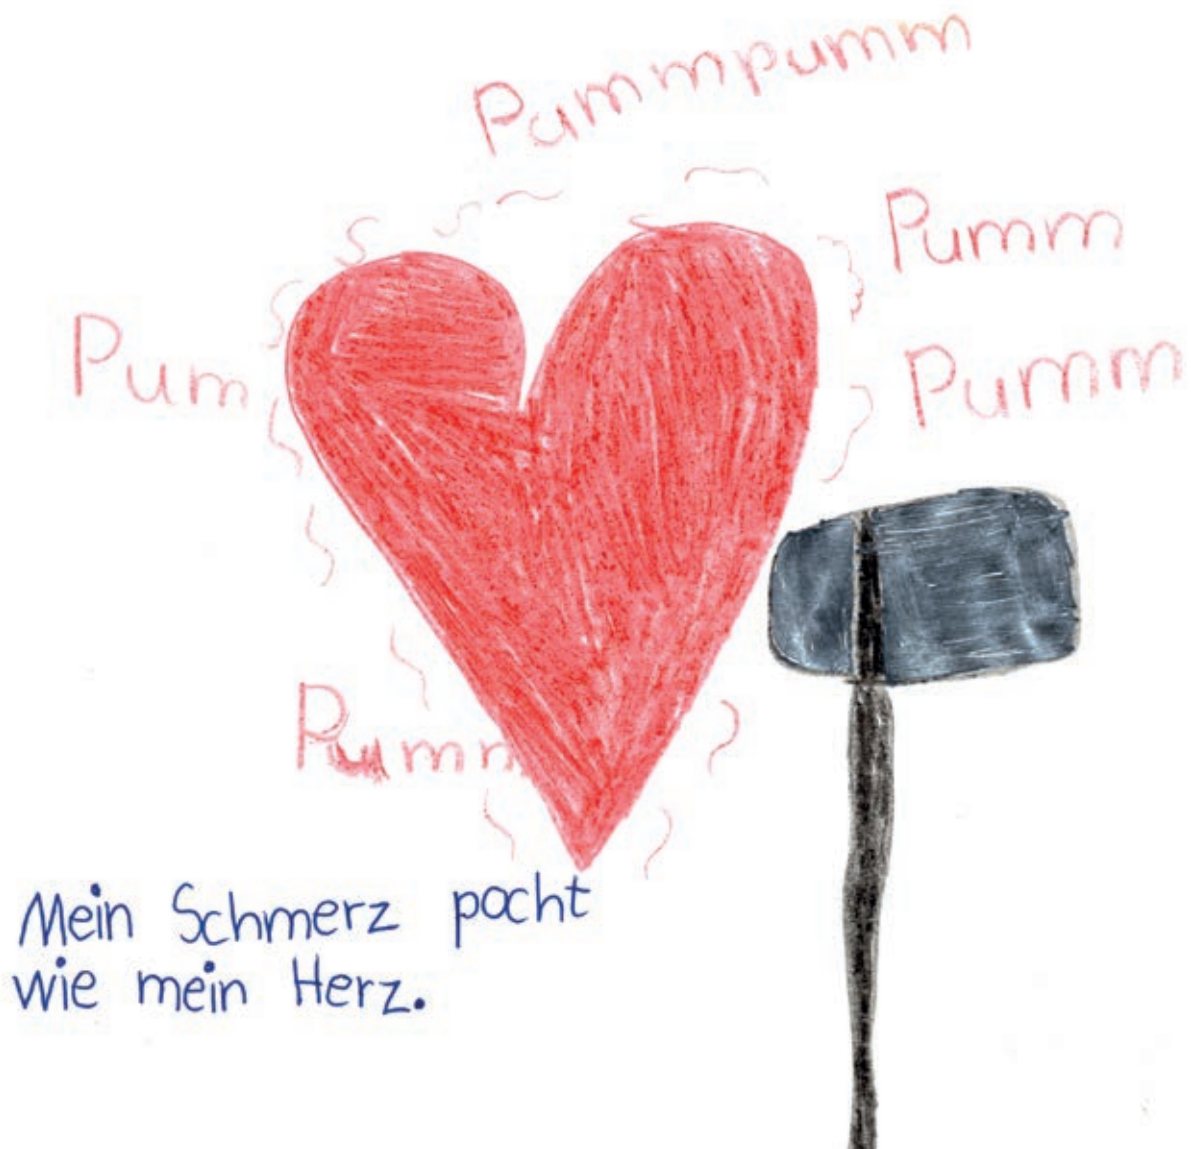 Pummpumm
Pumm
Pum
Pumm
Pumm
Mein Schmerz pocht
wie mein Herz.